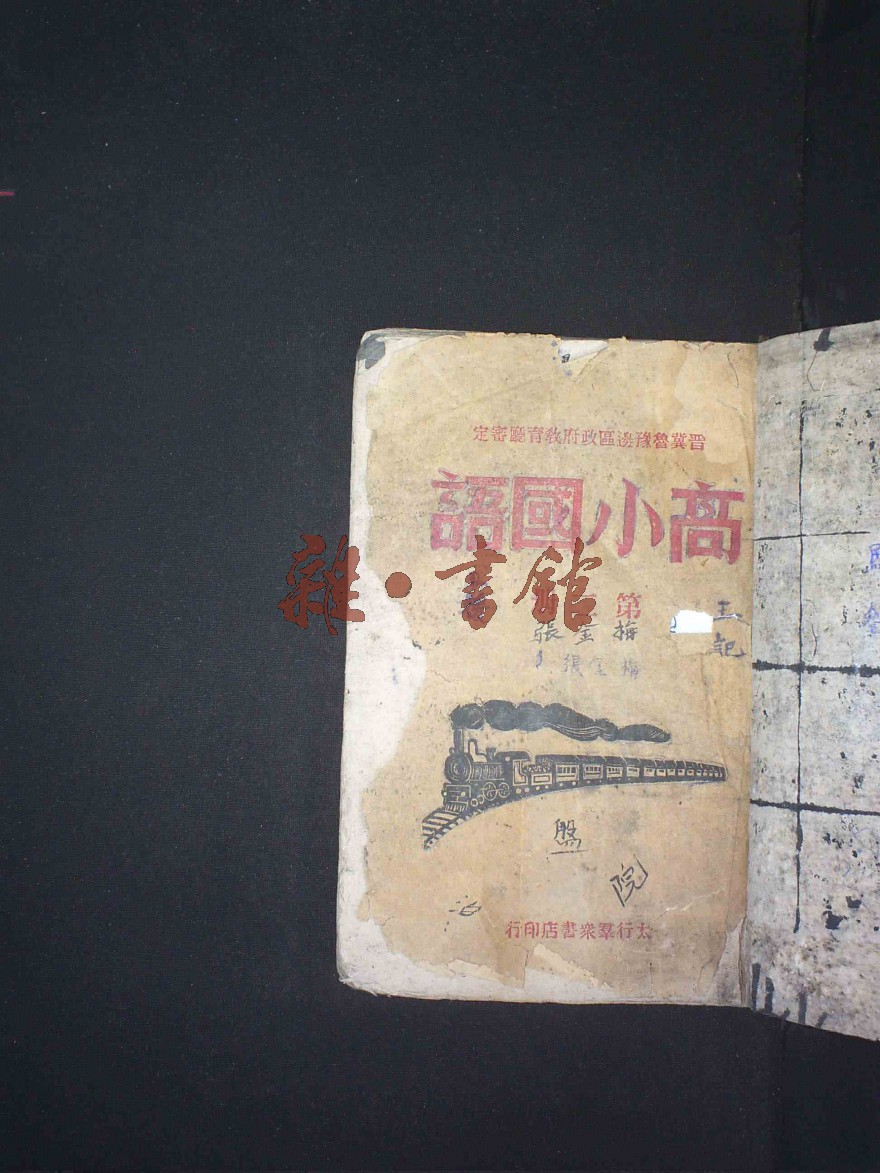 晋冀魯豫邊區政府教育廳審定
高小國語
第
雜·書館
張金梅
張金梅
王
記
盤
院
太行羣衆書店印行